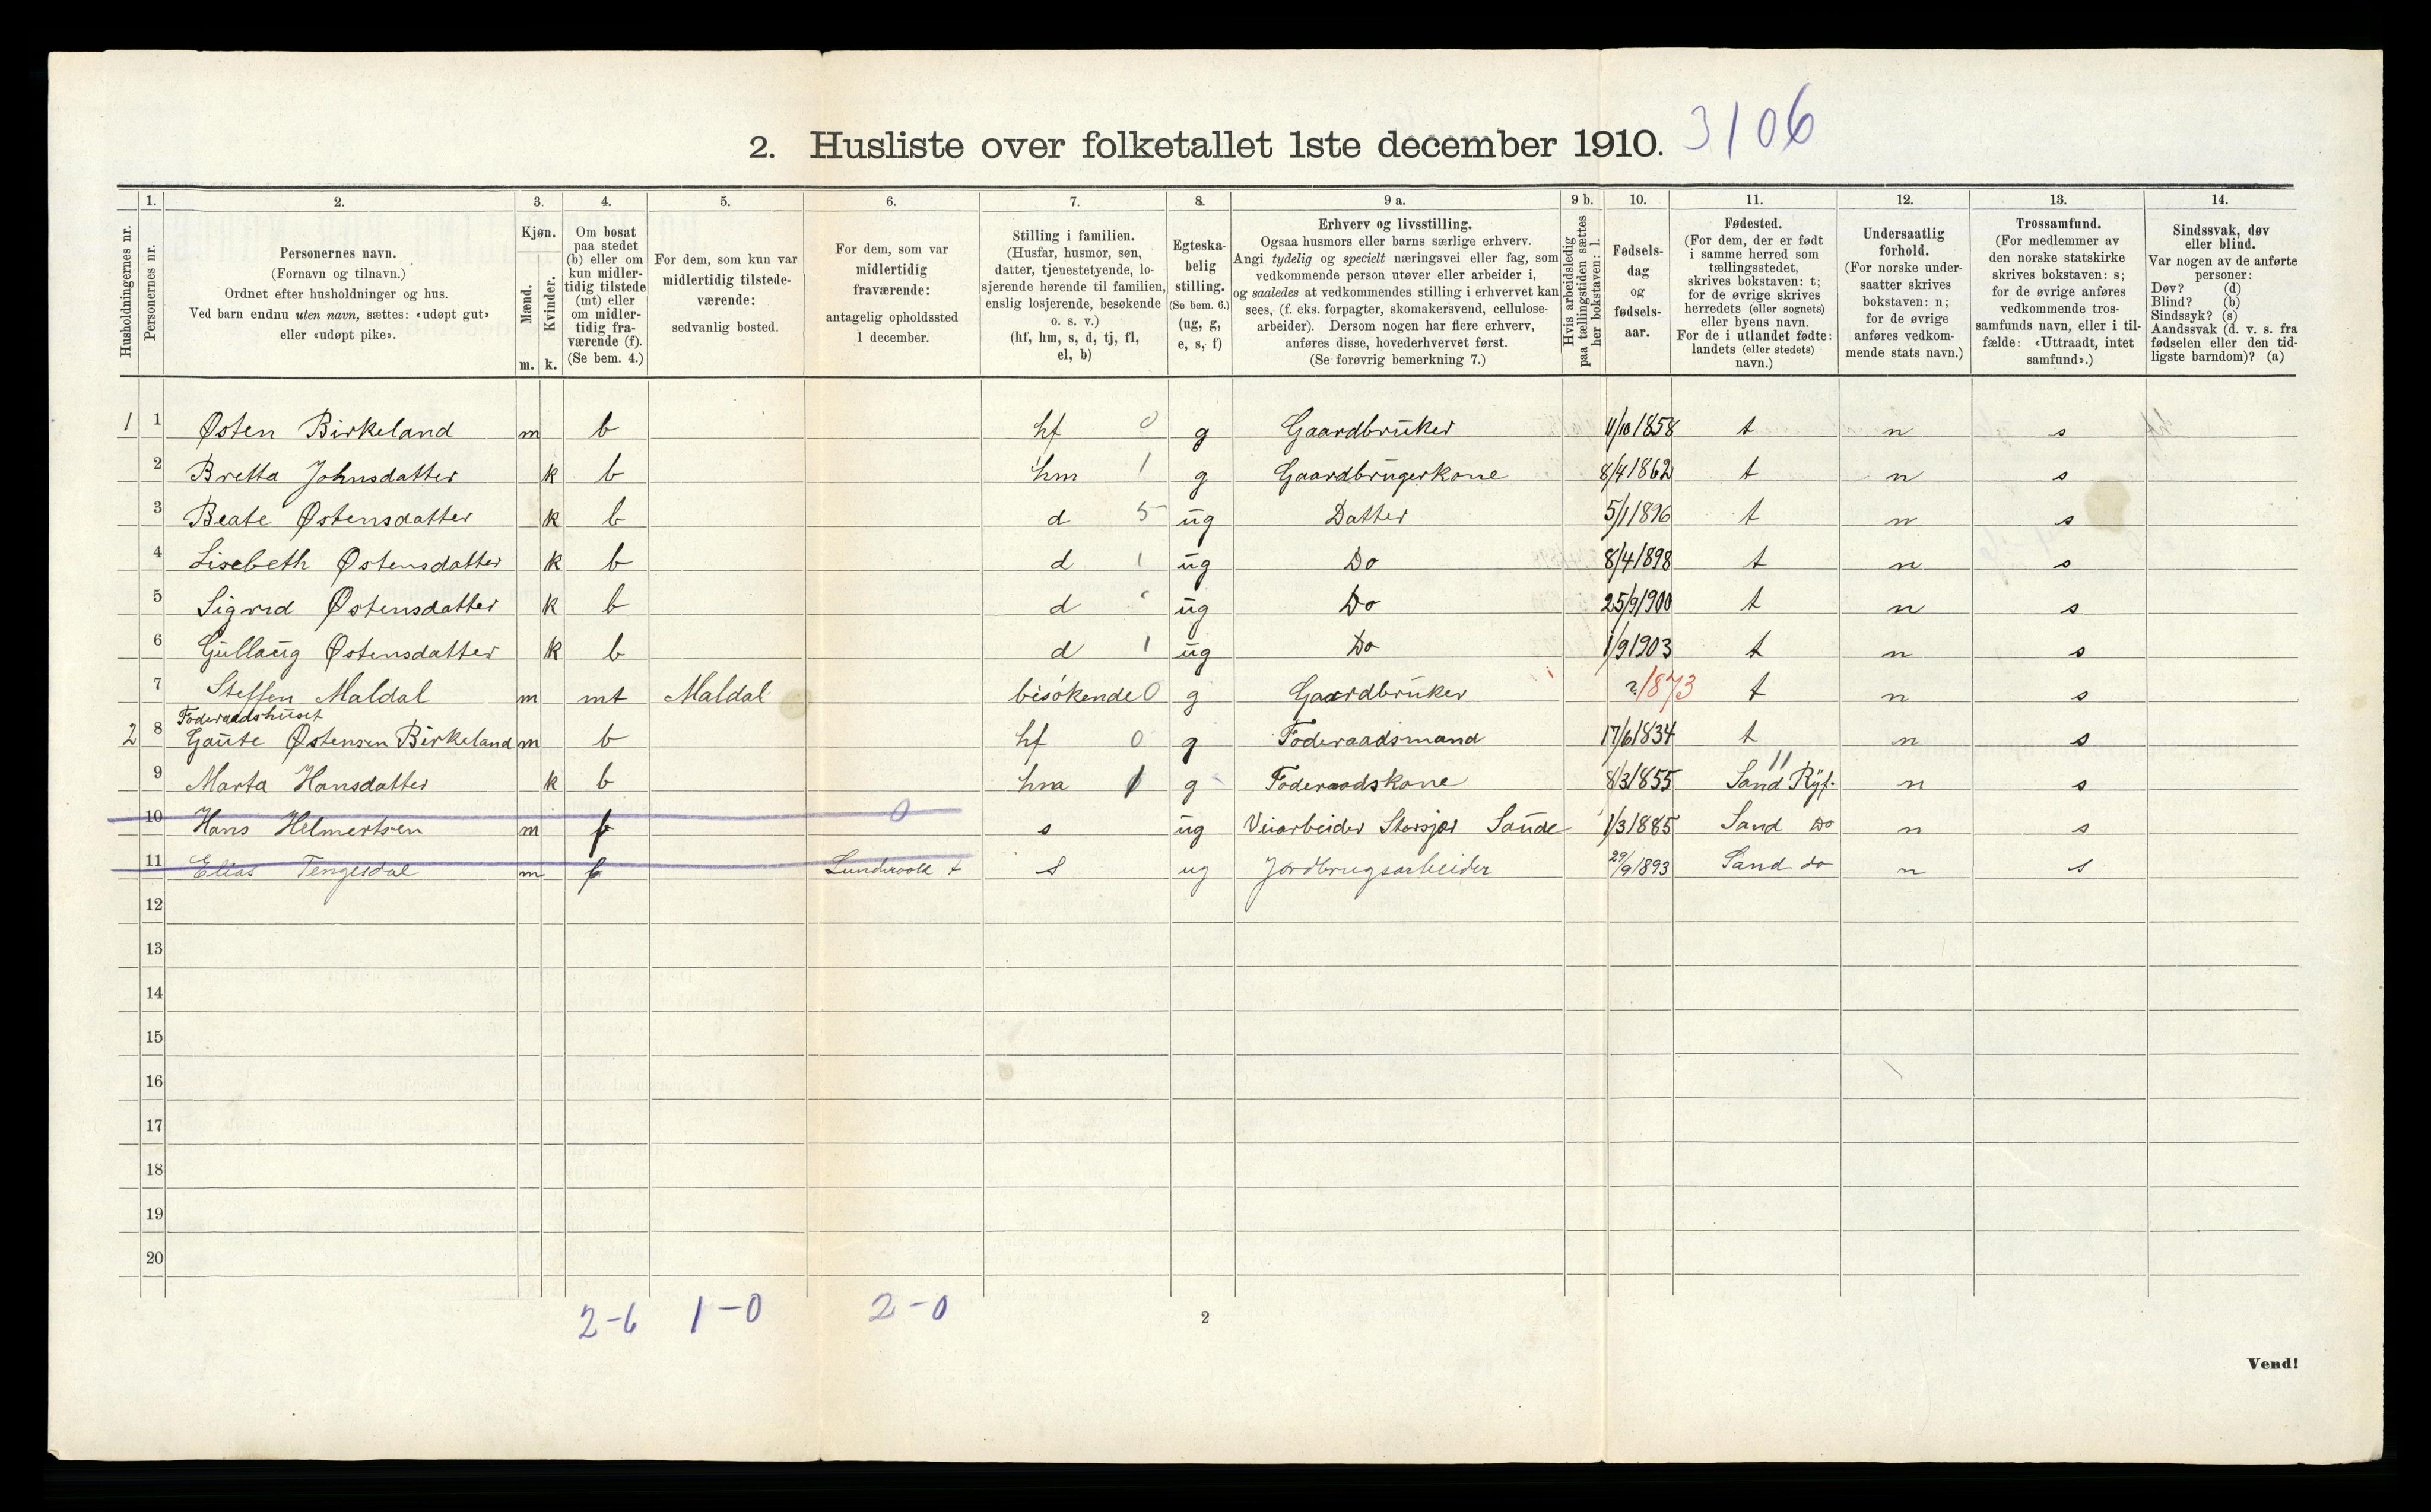 2. Husliste over folketallet 1ste december 1910. 3106
Husholdningernes nr.
1. Personernes nr.
2. Personernes navn. (Fornavn og tilnavn.) Ordnet efter husholdninger og hus. Ved barn endnu uten navn, sættes: «udøpt gut» eller «udøpt pike».
3. Kjøn. Mænd. m. Kvinder. k.
4. Om bosat paa stedet (b) eller om kun midler-tidig tilstede (mt) eller om midler-tidig fra-værende (f). (Se bem. 4.)
5. For dem, som kun var midlertidig tilstede-værende: sedvanlig bosted.
6. For dem, som var midlertidig fraværende: antagelig opholdssted 1 december.
7. Stilling i familien. (Husfar, husmor, søn, datter, tjenestetyende, lo-sjerende hørende til familien, enslig losjerende, besøkende o. s. v.) (hf, hm, s, d, tj, fl, el, b)
8. Egteska-belig stilling. (Se bem. 6.) (ug, g, e, s, f)
9 a. Erhverv og livsstilling. Ogsaa husmors eller barns særlige erhverv. Angi tydelig og specielt næringsvei eller fag, som vedkommende person utøver eller arbeider i, og saaledes at vedkommendes stilling i erhvervet kan sees, (f. eks. forpagter, skomakersvend, cellulose-arbeider). Dersom nogen har flere erhverv, anføres disse, hovederhvervet først. (Se forøvrig bemerkning 7.)
9 b. Hvis arbeidsledig paa tællingstiden sættes her bokstaven: l.
10. Fødsels-dag og fødsels-aar.
11. Fødested. (For dem, der er født i samme herred som tællingsstedet, skrives bokstaven: t; for de øvrige skrives herredets (eller sognets) eller byens navn. For de i utlandet fødte: landets (eller stedets) navn.)
12. Undersaatlig forhold. (For norske under-saatter skrives bokstaven: n; for de øvrige anføres vedkom-mende stats navn.)
13. Trossamfund. (For medlemmer av den norske statskirke skrives bokstaven: s; for de øvrige anføres vedkommende tros-samfunds navn, eller i til-fælde: «Uttraadt, intet samfund».)
14. Sindssvak, døv eller blind. Var nogen av de anførte personer: Døv? (d) Blind? (b) Sindssyk? (s) Aandssvak (d. v. s. fra fødselen eller den tid-ligste barndom)? (a)
1 1 Østen Birkeland m b hf 0 g Gaardbruker 11/10 1858 t n s
2 Bretta Johnsdatter k b hm 1 g Gaardbrugerkone 8/4 1862 t n s
3 Beate Østensdatter k b d 5 ug Datter 5/1 1896 t n s
4 Lisebeth Østensdatter k b d 1 ug Do 8/4 1898 t n s
5 Sigrid Østensdatter k b d ug Do 25/9 1900 t n s
6 Gullaug Østensdatter k b d 1 ug Do 1/9 1903 t n s
7 Steffen Maldal m mt Maldal bisøkende 0 g Gaardbruker ? 1873 t n s
Føderaadshuset
2 8 Gaute Østensen Birkeland m b hf 0 g Føderaadsmand 17/6 1834 t n s
9 Marta Hansdatter k b hm 1 g Føderaadskone 8/3 1855 Sand Ryf. n s
10 Hans Helmertsen m f 0 s ug Veiarbeider Saude 1/3 1885 Sand Do n s
11 Elias Tengesdal m f t s ug Jordbrugsarbeider 29/9 1893 Sand do n s
12
13
14
15
16
17
18
19
20
2-6 1-0 2-0
2
Vend!